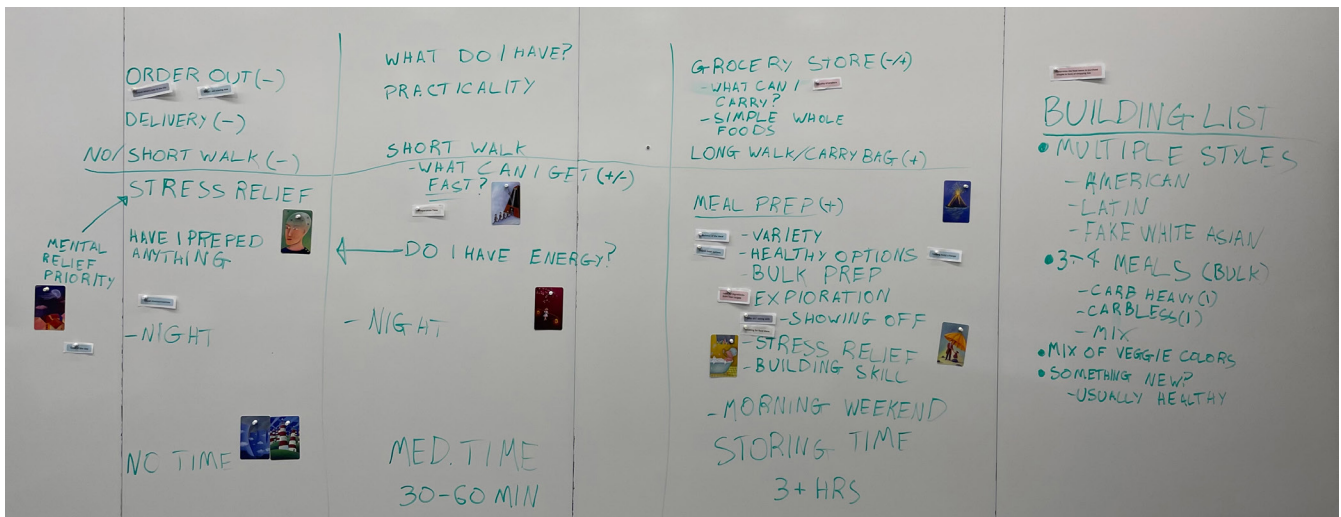 ORDER OUT (-)
DELIVERY (-)
NO/ SHORT WALK (-)
STRESS RELIEF
MENTAL
RELIEF
PRIORITY
HAVE I PREPED
ANYTHING
-NIGHT
NO TIME
WHAT DO I HAVE?
PRACTICALITY
SHORT WALK
-WHAT CAN I GET (+/-)
FAST?
DO I HAVE ENERGY?
-NIGHT
MED. TIME
30-60 MIN
GROCERY STORE (-/+)
-WHAT CAN I
CARRY?
-SIMPLE WHOLE
FOODS
LONG WALK/CARRY BAG (+)
MEAL PREP (+)
-VARIETY
-HEALTHY OPTIONS
-BULK PREP
EXPIORATION
-SHOWING OFF
-STRESS RELIEF
-BUILDING SKILL
-MORNING WEEKEND
STORING TIME
3+ HRS
BUILDING LIST
• MULTIPLE STYLES
-AMERICAN
-LATIN
-FAKE WHITE ASIAN
• 3-4 MEALS (BULK)
-CARB HEAVY (1)
-CARBLESS (1)
-MIX
• MIX OF VEGGIE COLORS
• SOMETHING NEW?
-USUALLY HEALTHY